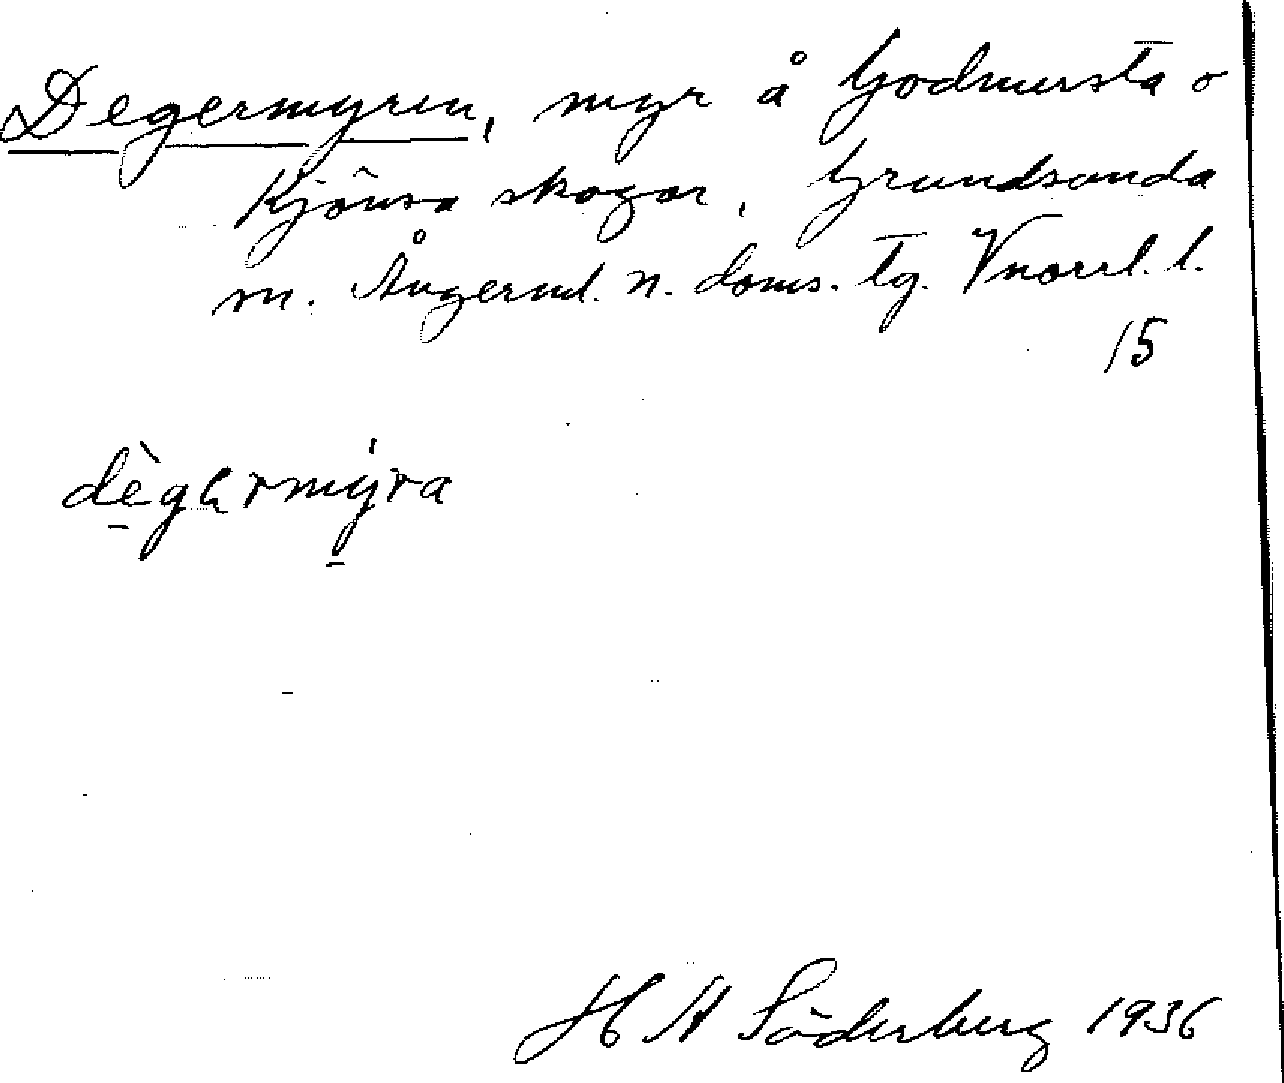 Degermyren, myr å Godmersta o
Kjörvsa skogar, Grundsunda
sn. Ångerml. n. doms. tg. Vnorrl. l.
15
dègərmýra
H A Söderberg 1936